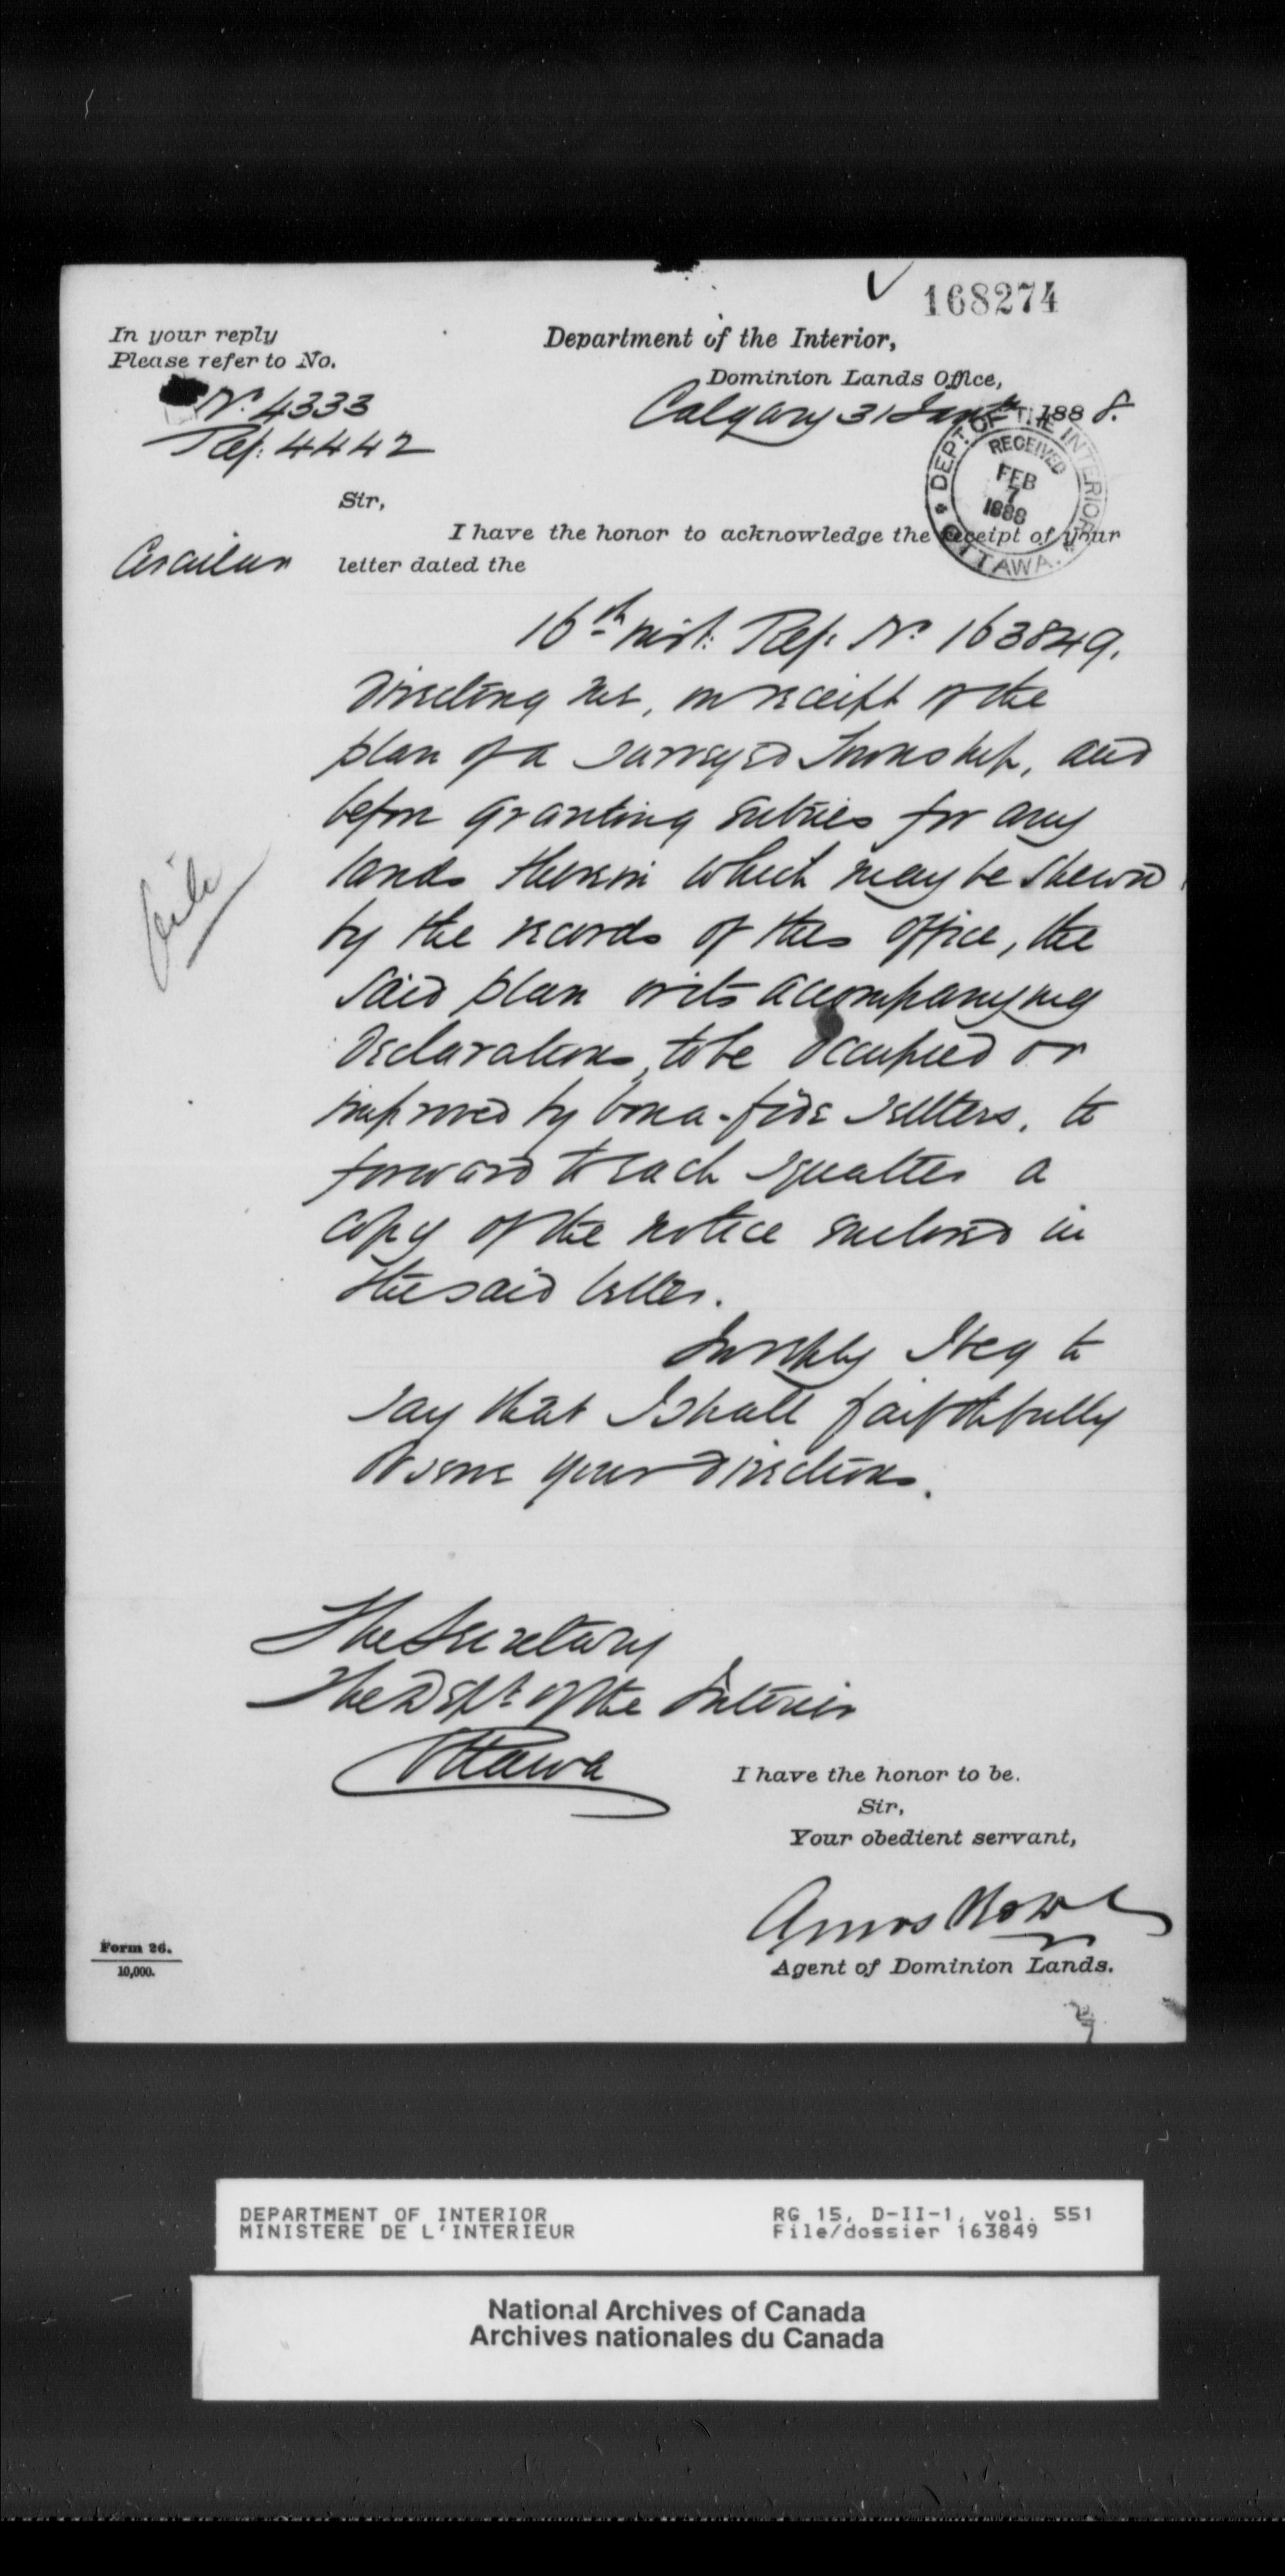 168274
In your reply
Please refer to No.
No. 4333
Ref: 4442
Department of the Interior,
Dominion Lands Office,
Calgary 31 Jany 1888.
DEPT. OF THE INTERIOR
RECEIVED
FEB
7
1888
OTTAWA.
Sir,
I have the honor to acknowledge the receipt of your
Circular
letter dated the
16th inst: Ref: No. 163849.
directing me, on receipt of the
plan of a surveyed Township, and
before granting entries for any
lands therein which may be shewn
by the records of this office, the
said plan or its accompanying
declarations, to be occupied or
improved by bona-fide settlers, to
forward to each squatter a
copy of the notice enclosed in
the said letter.
In reply I beg to
say that I shall faithfully
observe your directions.
file
The Secretary
The Dept. of the Interior
Ottawa
I have the honor to be.
Sir,
Your obedient servant,
Amos Rowe
Agent of Dominion Lands.
Form 26.
10,000.
DEPARTMENT OF INTERIOR
MINISTERE DE L'INTERIEUR
RG 15, D-II-1, vol. 551
File/dossier 163849
National Archives of Canada
Archives nationales du Canada